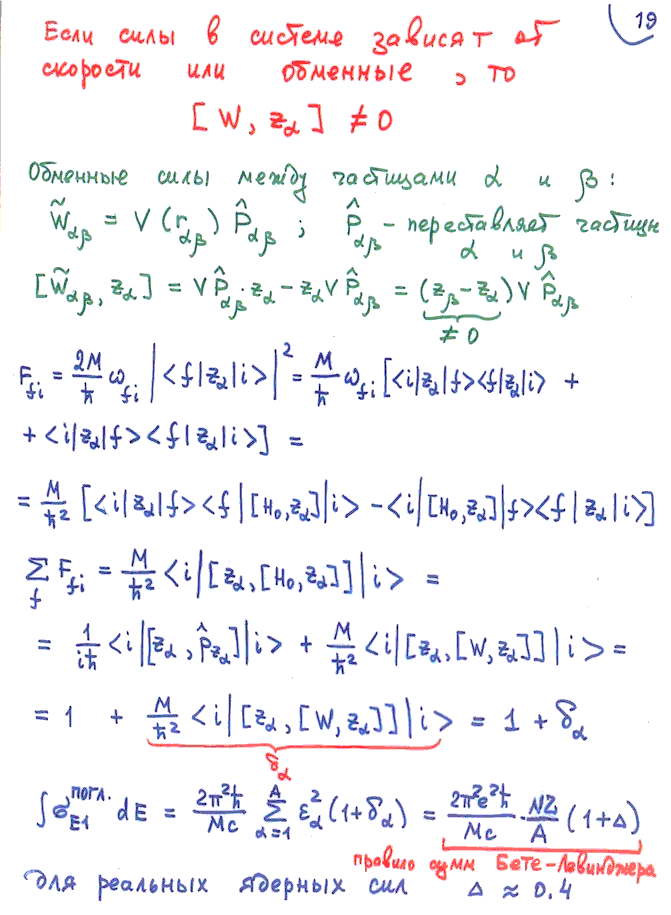 19
Если силы в системе зависят от
скорости или обменные, то
[W, z_α] ≠ 0
Обменные силы между частицами α и β:
W̃_αβ = V(r_αβ) P̂_αβ ; P̂_αβ - переставляет частицы
α и β
[W̃_αβ, z_α] = V P̂_αβ · z_α - z_α V P̂_αβ = (z_β - z_α) V P̂_αβ
≠ 0
F_fi = 2M/ħ ω_fi |<f|z_α|i>|² = M/ħ ω_fi [<i|z_α|f><f|z_α|i> +
+ <i|z_α|f><f|z_α|i>] =
= M/ħ² [<i|z_α|f><f|[H₀,z_α]|i> - <i|[H₀,z_α]|f><f|z_α|i>]
∑_f F_fi = M/ħ² <i|[z_α,[H₀,z_α]]|i> =
= 1/iħ <i|[z_α, P̂_zα]|i> + M/ħ² <i|[z_α,[W,z_α]]|i> =
= 1 + M/ħ² <i|[z_α,[W,z_α]]|i> = 1 + δ_α
δ_α
∫σ_E1^погл. dE = 2π²ħ/Mc ∑_{α=1}^A ε_α² (1+δ_α) = 2π²e²ħ/Mc · NZ/A (1+Δ)
правило сумм Бете-Левинджера
для реальных ядерных сил Δ ≈ 0.4